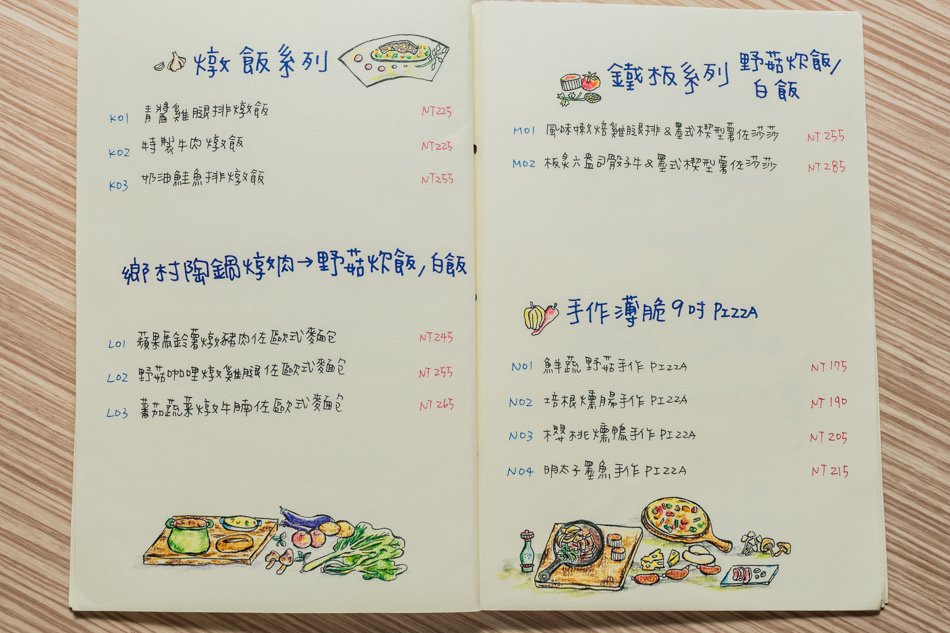 燉飯系列
K01 青醬雞腿排燉飯 NT225
K02 特製牛肉燉飯 NT225
K03 奶油鮭魚排燉飯 NT255
鄉村陶鍋燉肉→野菇炊飯/白飯
L01 蘋果馬鈴薯燉豬肉佐歐式麵包 NT245
L02 野菇咖哩燉雞腿佐歐式麵包 NT255
L03 蕃茄蔬菜燉牛腩佐歐式麵包 NT265
鐵板系列 野菇炊飯/
白飯
M01 風味燉焙雞腿排&墨式楔型薯佐莎莎 NT255
M02 板炙六盎司骰子牛&墨式楔型薯佐莎莎 NT285
手作薄脆9吋PIZZA
N01 鮮蔬野菇手作PIZZA NT175
N02 培根燻腸手作PIZZA NT190
N03 櫻桃燻鴨手作PIZZA NT205
N04 明太子墨魚手作PIZZA NT215